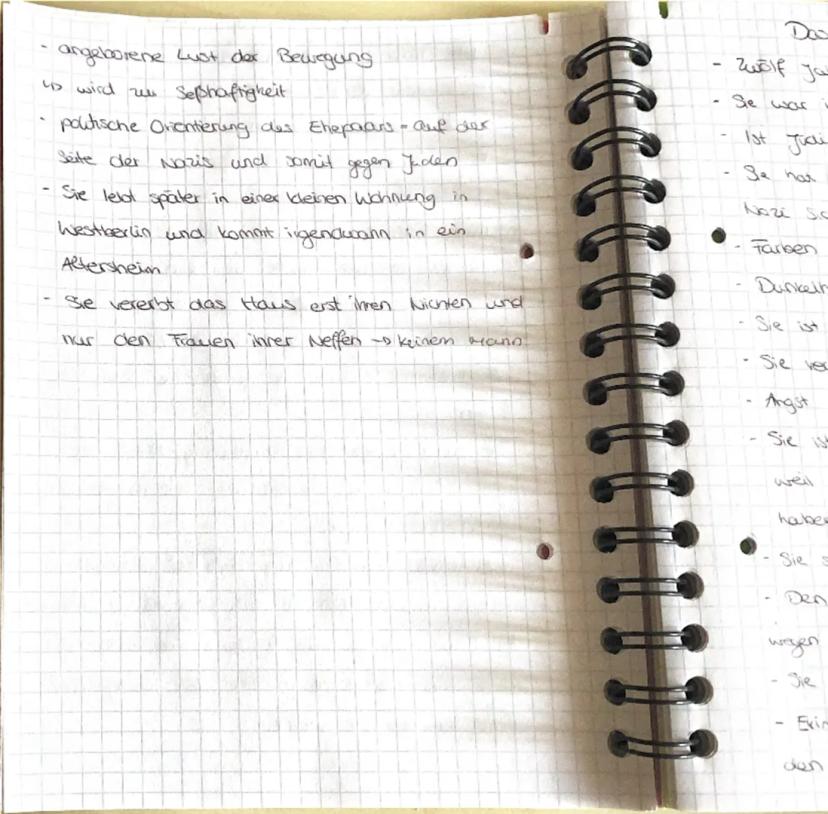 - angeborene Lust der Bewegung
↳ wird zu Seßhaftigkeit
- politische Orientierung des Ehepaars - auf der
Seite der Nazis und somit gegen Juden
- Sie lebt später in einer kleinen Wohnung in
Westberlin und kommt irgendwann in ein
Altersheim
- Sie vererbt das Haus erst ihren Nichten und
nur den Frauen ihrer Neffen → keinem Mann
Das
- Zwölf
- Sie war
- Ist
- Sie hat
Nazi
- Farben
-
- Sie ist
- Sie
- Angst
- Sie
weil
habe
- Sie
- Den
wegen
- Sie
-
den